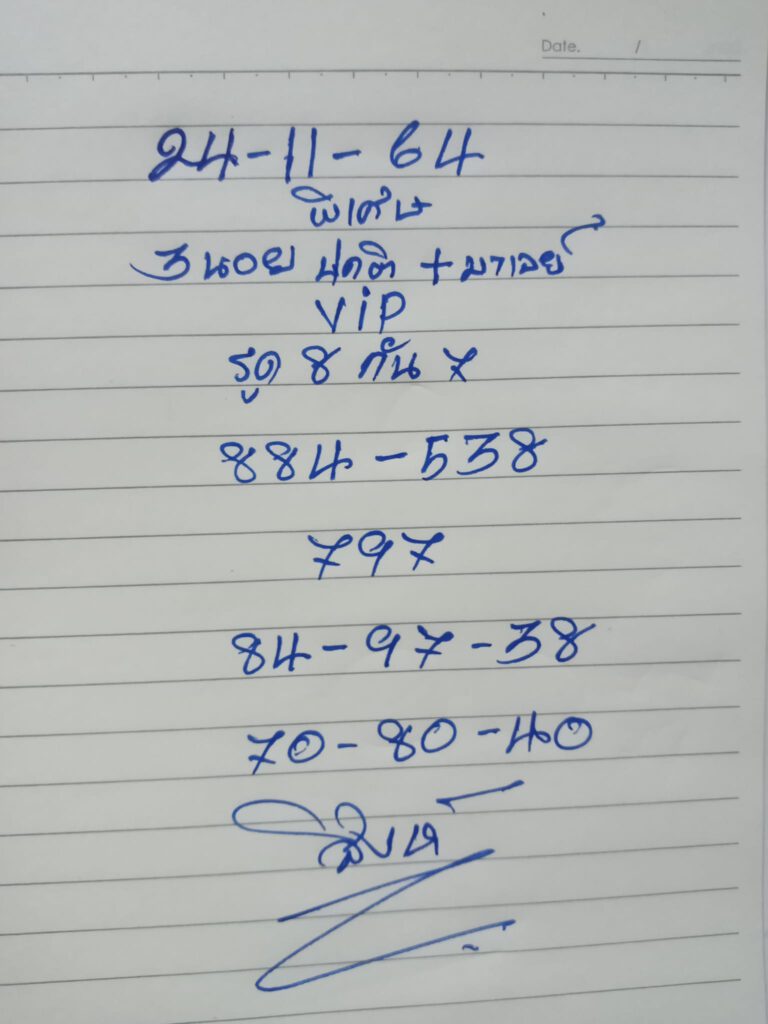 Date. /
24-11-64
พิเศษ
3 นอย ปกติ + มาเลย์
ViP
รูด 8 กัน 7
884 - 538
797
84 - 97 - 38
70 - 80 - 40